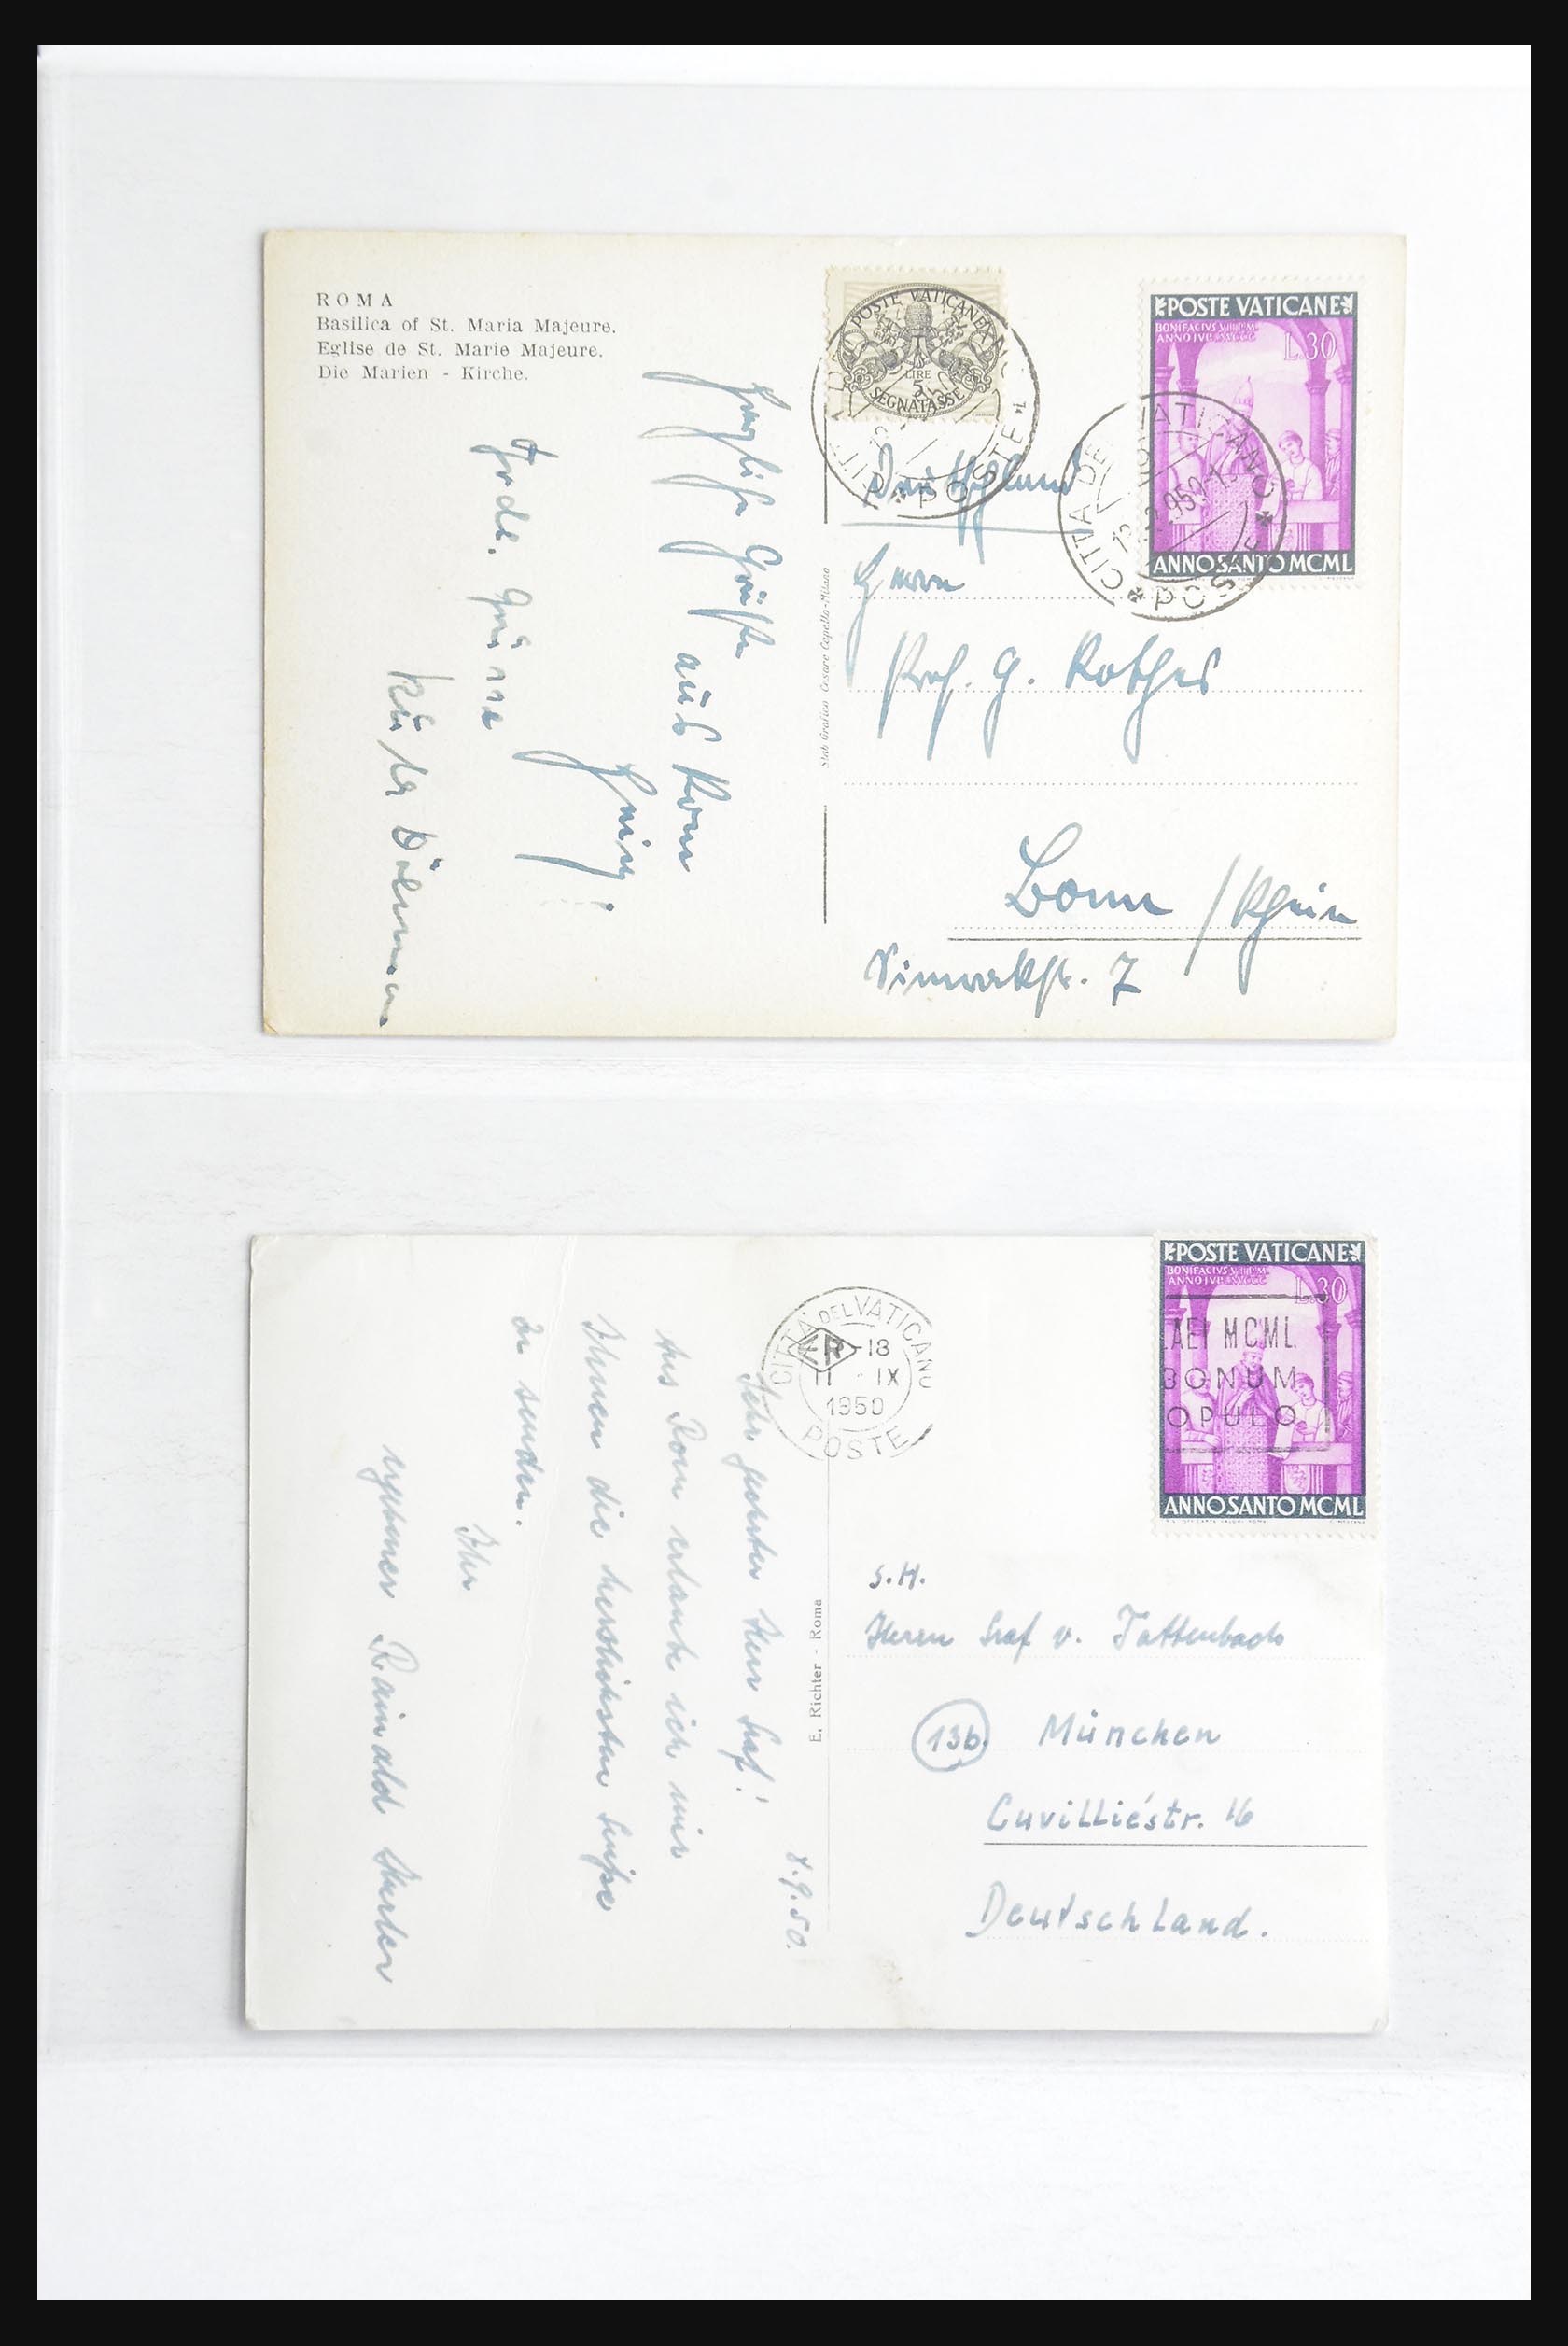 ROMA
Basilica of St. Maria Majeure.
Eglise de St. Marie Majeure.
Die Marien - Kirche.
POSTE VATICANE
LIRE
5
SEGNATASSE
CITTÀ DEL VATICANO
POSTE
POSTE VATICANE
BONIFACIVS VIII P.M.
ANNO IVB. MCCC
L.30
ANNO SANTO MCML
CITTÀ DEL VATICANO
POSTE
Herzliche Grüße
aus Rom
Frdl. Grüsse
Stab Grafico Cesare Capello-Milano
Deutschland
Herrn
Prof. G. Rothes
Bonn / Rhein
Simrockstr. 7
CITTÀ DEL VATICANO
R -18
11 · IX
1950
POSTE
POSTE VATICANE
BONIFACIVS VIII P.M.
ANNO IVB. MCCC
L.30
LAEI MCML
BONUM
OPULO
ANNO SANTO MCML
8.9.50.
Sehr geehrter Herr Graf!
Aus Rom erlaube ich mir
Ihnen die herzlichsten Grüße
zu senden.
Ihr
ergebener Rainald
E. Richter - Roma
S.H.
Herrn Graf v. Tattenbach
13b. München
Cuvilliéstr. 16
Deutschland.